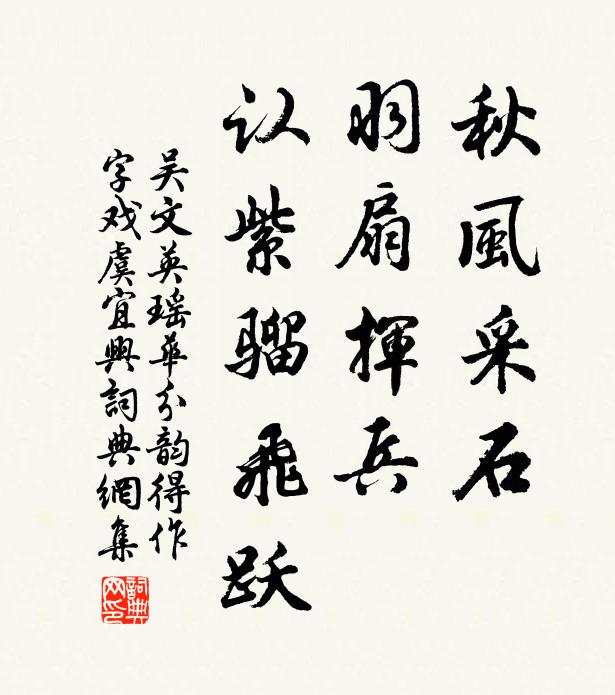 秋風采石
羽扇揮兵
认紫骝飛跃
吴文英瑶華分韵得作
字戏虞宜興詞典網集
詞典網印